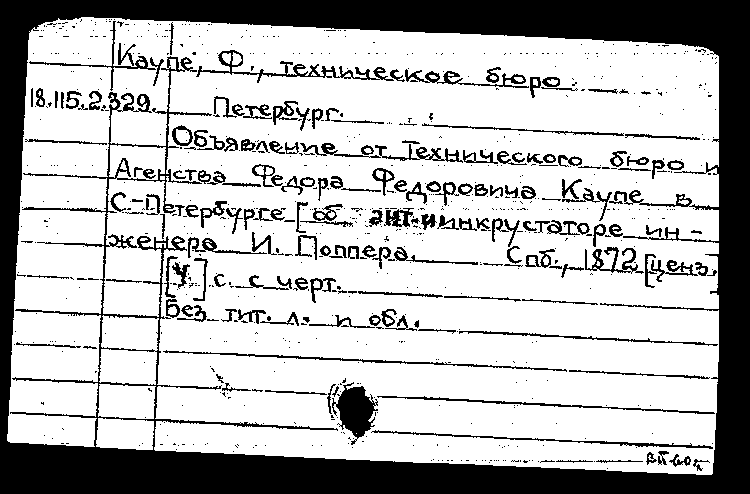 Каупе, Ф., техническое бюро.
18.115.2.329. Петербург.
Объявление от Технического бюро и
Агенства Федора Федоровича Каупе в
С-Петербурге [об анти-инкрустаторе ин-
женера И. Поппера. Спб., 1872 [ценз.]
[4] с. с черт.
Без тит. л. и обл.